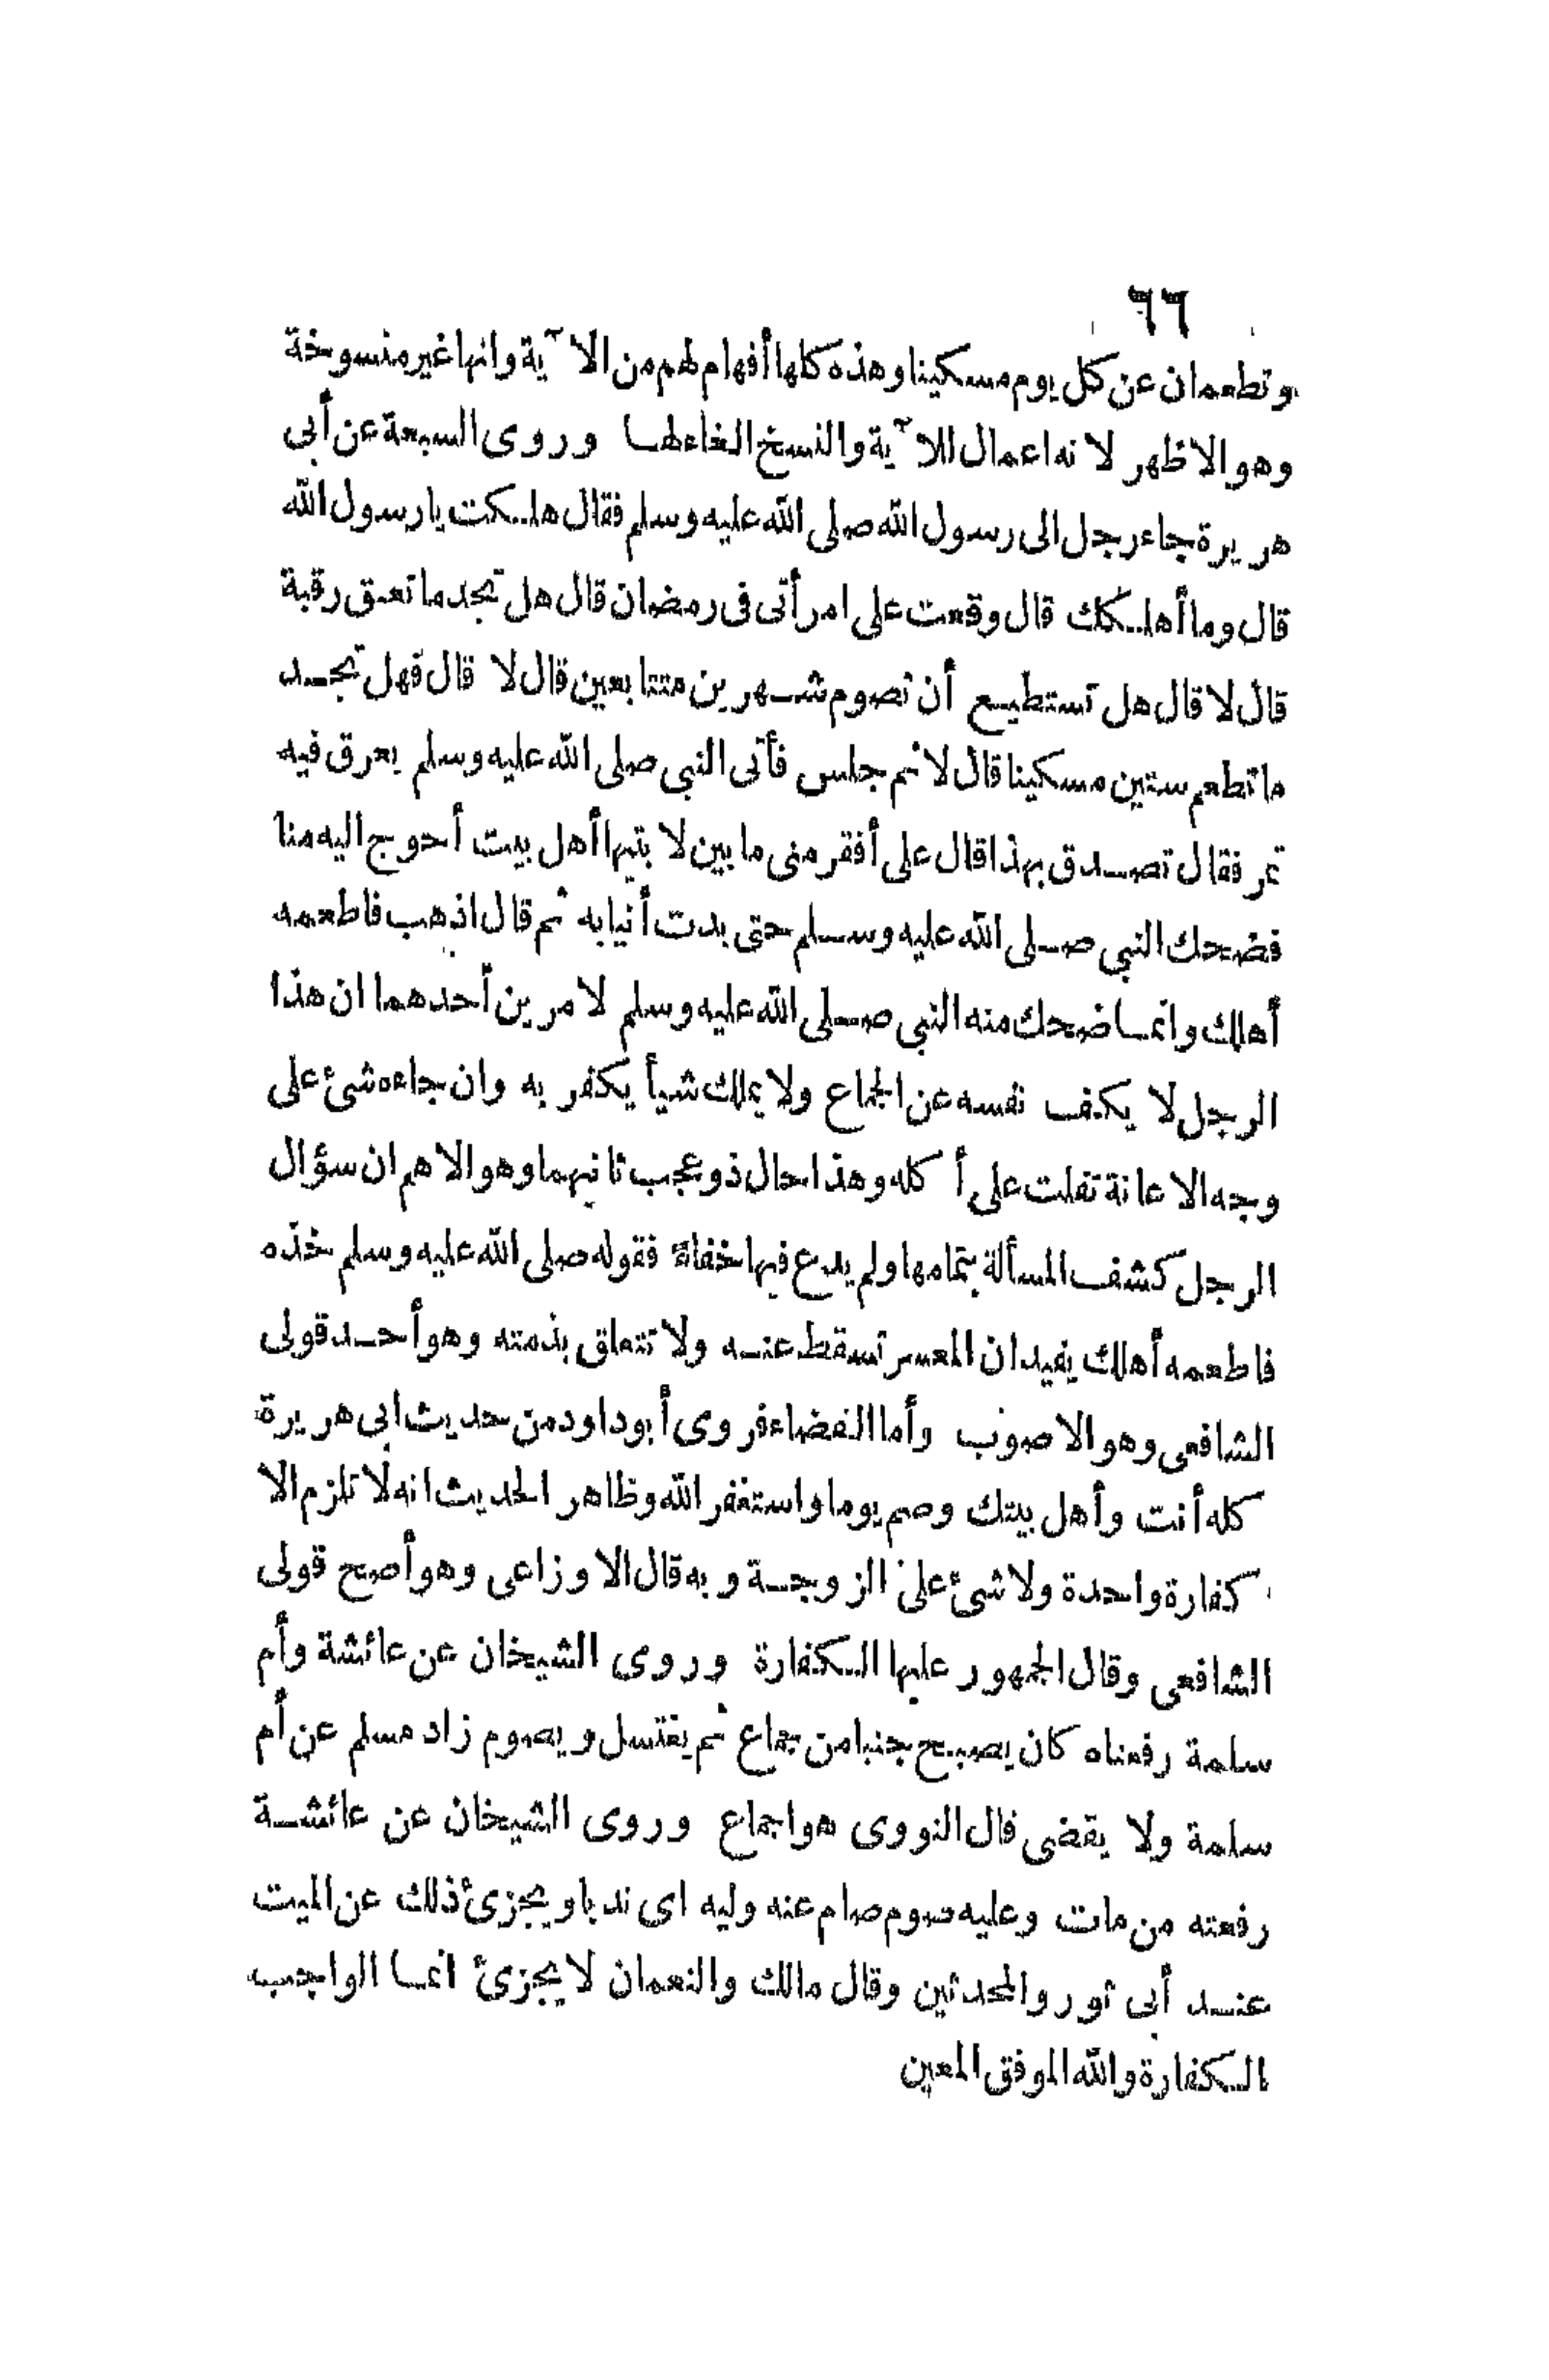 ٦٦
وتطعمان عن كل يوم مسكينا وهذه كلها أفهام لهم من الآية وانها غير منسوخة
وهو الاظهر لانه اعمال للآية والنسخ الغاء لها وروى السبعة عن أبى
هريرة جاء رجل الى رسول الله صلى الله عليه وسلم فقال هلكت يا رسول الله
قال وما أهلكك قال وقعت على امرأتى فى رمضان قال هل تجد ما تعتق رقبة
قال لا قال هل تستطيع أن تصوم شهرين متتابعين قال لا قال فهل تجد
ما تطعم ستين مسكينا قال لا ثم جلس فأتى النبى صلى الله عليه وسلم بعرق فيه
تمر فقال تصدق بهذا قال على أفقر منى ما بين لا بتيها أهل بيت أحوج اليه منا
فضحك النبى صلى الله عليه وسلم حتى بدت أنيابه ثم قال اذهب فاطعمه
أهلك وانما ضحك منه النبى صلى الله عليه وسلم لامرين أحدهما ان هذا
الرجل لا يكف نفسه عن الجماع ولا يملك شيأ يكفر به وان جاءه شئ على
وجه الاعانة تفلت على أكله وهذا حال ذو عجب ثانيهما وهو الاهم ان سؤال
الرجل كشف المسألة بتمامها ولم يدع فيها خفاء فقوله صلى الله عليه وسلم خذه
فاطعمه أهلك يفيد ان المعسر تسقط عنه ولا تتعلق بذمته وهو أحد قولى
الشافعى وهو الاصوب وأما القضاء فروى أبو داود من حديث ابى هريرة
كله أنت وأهل بيتك وصم يوما واستغفر الله وظاهر الحديث انه لا تلزم الا
كفارة واحدة ولا شئ على الزوجة وبه قال الاوزاعى وهو أصح قولى
الشافعى وقال الجمهور عليها الكفارة وروى الشيخان عن عائشة وأم
سلمة رفعناه كان يصبح جنبا من جماع ثم يغتسل ويصوم زاد مسلم عن أم
سلمة ولا يقضى قال النووى هو اجماع وروى الشيخان عن عائشة
رفعته من مات وعليه صوم صام عنه وليه اى ندبا ويجزئ ذلك عن الميت
عند أبى ثور والمحدثين وقال مالك والنعمان لا يجزئ انما الواجب
الكفارة والله الموفق المعين